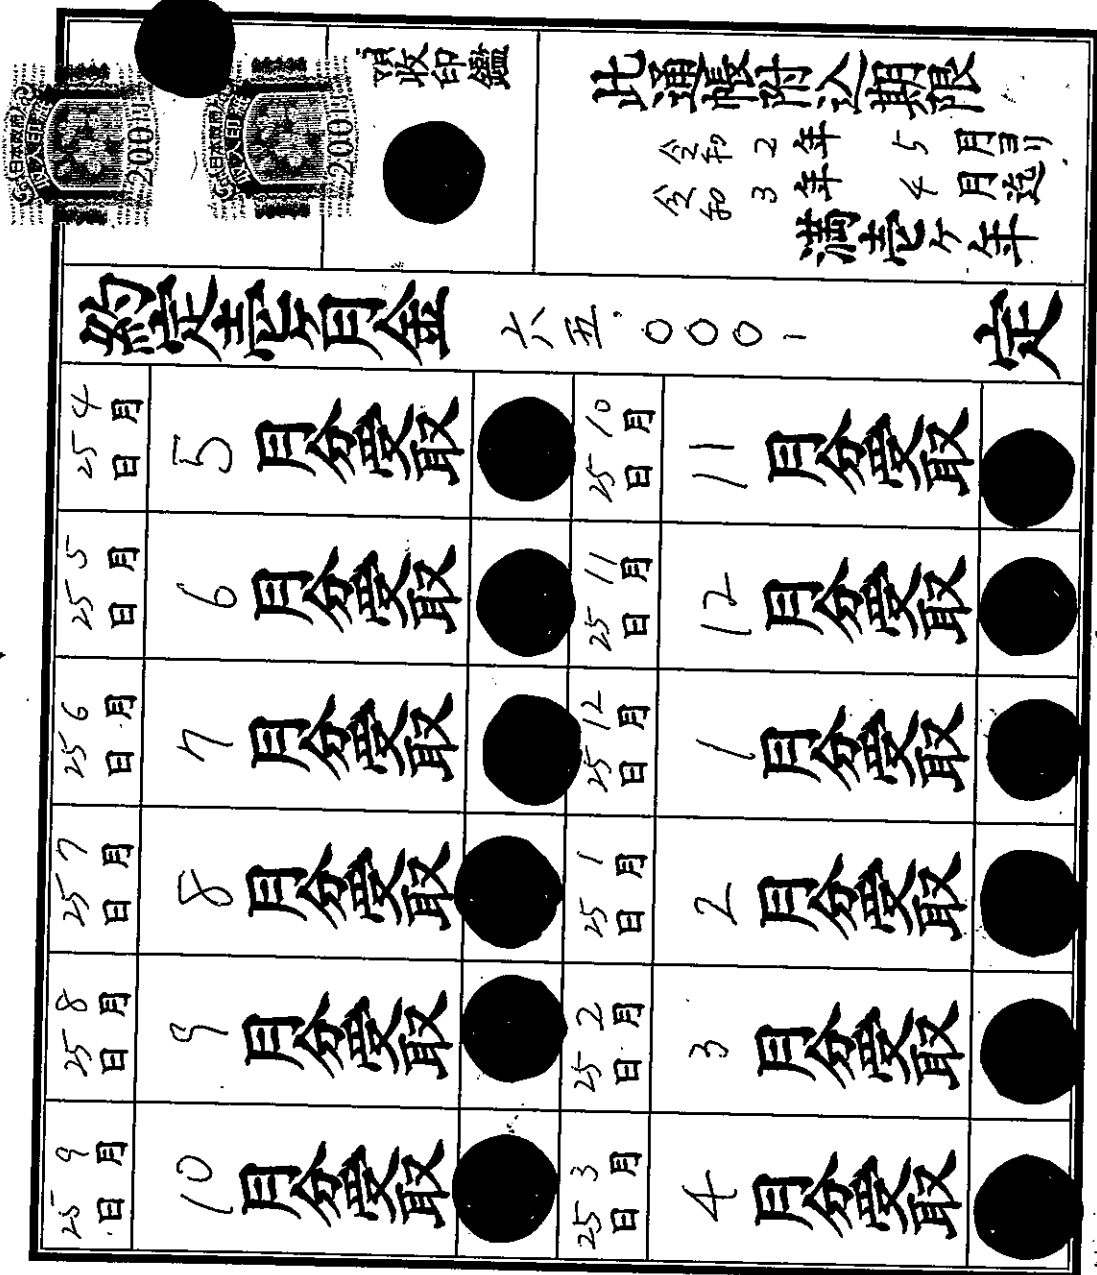 此通帳附込期限
令和2年5月ヨリ
令和3年4月迄
満壱ケ年
領収印鑑
日本政府
収入印紙
200円
日本政府
収入印紙
200円
約定壱ケ月金 六五.〇〇〇- 定
4月25日 5月分受取
5月25日 6月分受取
6月25日 7月分受取
7月25日 8月分受取
8月25日 9月分受取
9月25日 10月分受取
10月25日 11月分受取
11月25日 12月分受取
12月25日 1月分受取
1月25日 2月分受取
2月25日 3月分受取
3月25日 4月分受取